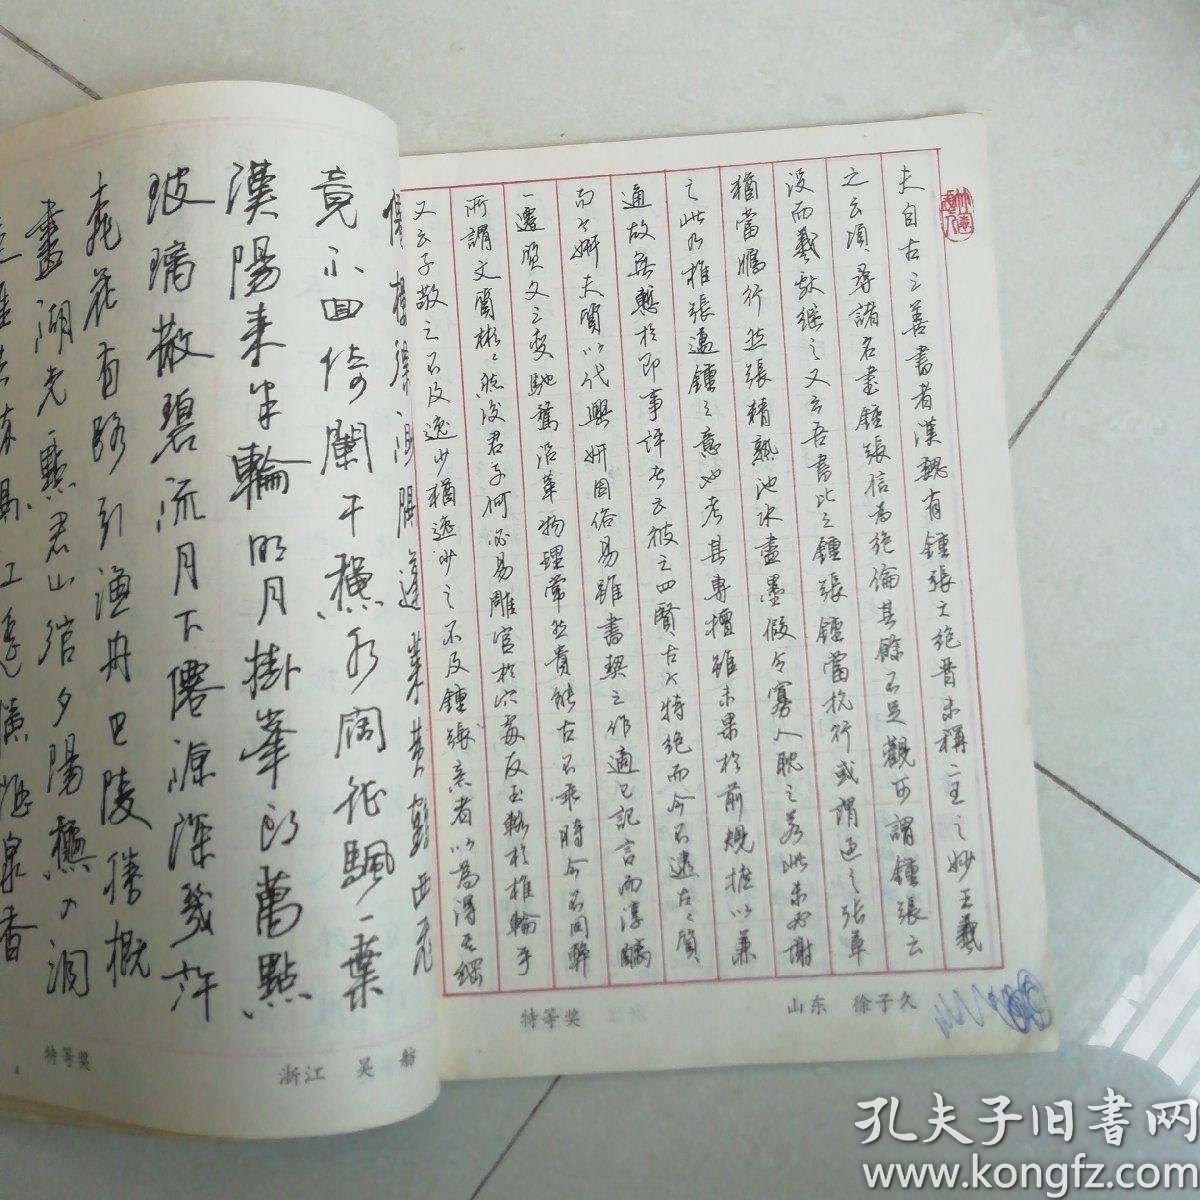 夫自古之善書者漢魏有鍾張之絶晋末稱二王之妙王羲
之云頃尋諸名書鍾張信爲絶倫其餘不足觀可謂鍾張云
没而羲献继之又云吾書比之鍾張鍾當抗行或謂過之張草
猶當鴈行然張精熟池水盡墨假令寡人耽之若此未必謝
之此乃推張邁鍾之意也考其專擅雖未果於前規摭以兼
通故無慙於即事评者云彼之四賢古今特绝而今不逮古古質
而今妍夫質以代興妍因俗易雖書契之作適以記言而淳醨
一遷質文三變馳騖沿革物理常然貴能古不乖時今不同弊
所謂文質彬彬然後君子何必易雕宫於穴處反玉輅於椎輪乎
又云子敬之不及逸少猶逸少之不及鍾張意者以為得其綱
山东 徐子久
特等奖
竟不回倚闌干横水闊征颿一葉
漢陽來半輪明月掛峯的萬點
玻璃散碧流月下僊源深幾許
桃花有路引漁舟巴陵勝概
畫湖光一點君山宿夕陽
浙江 吴 舫
特等奖
4
孔夫子旧書网
www.kongfz.com